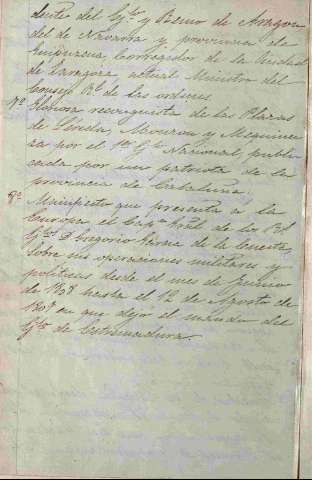 dente del Gjto y Reino de Aragon
del de Navarra y provincia de
Guipuzcoa, Corregidor de la Ciudad
de Zaragoza, actual Ministro del
Consejo Rl de las ordenes.
7º Gloriosa reconquista de las Plazas
de Lérida, Monzon y Mequinen
za por el 1er Gto Nacional, publi
cada por un patriota de la
provincia de Cataluña.
8º Manifiesto que presenta a la
Europa el Capn Gral de los Rs
Gtos D. Gregorio Garcia de la Cuesta,
sobre sus operaciones militares y
politicas desde el mes de Junio
de 1808 hasta el 12 de Agosto de
1809 en que dejó el mando del
Gto de Extremadura.